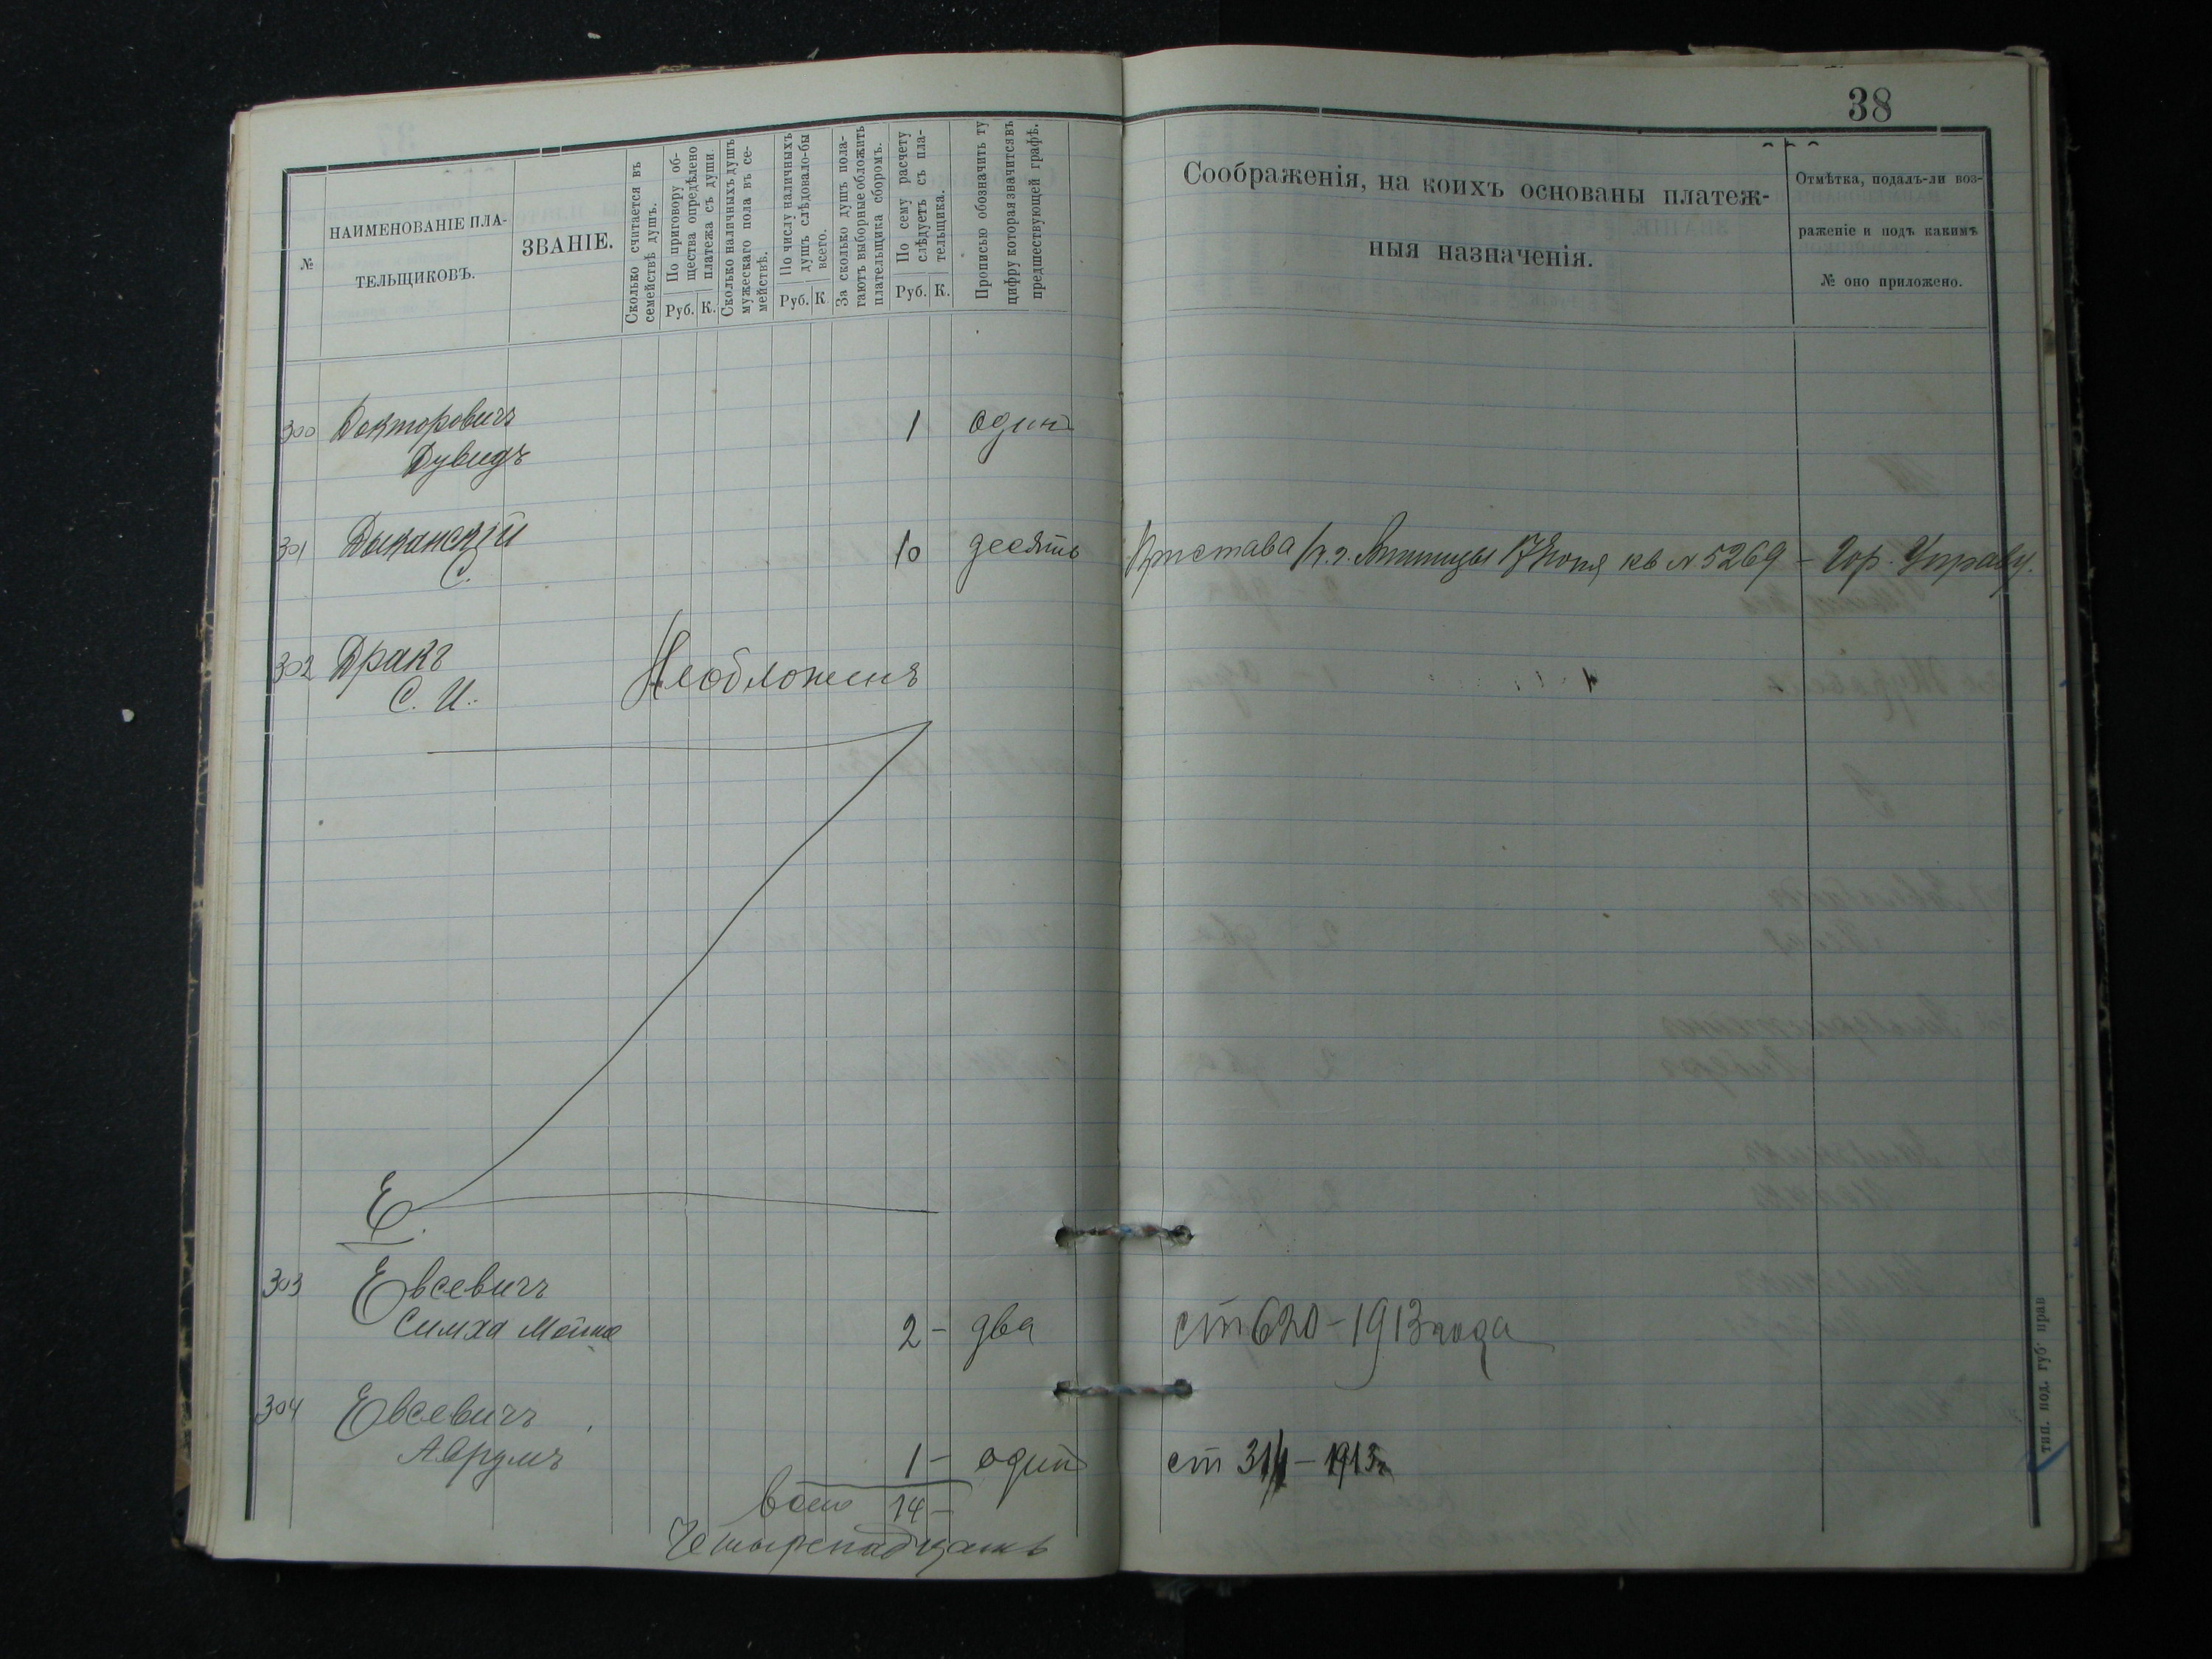 38
№
НАИМЕНОВАНІЕ ПЛА-
ТЕЛЬЩИКОВЪ.
ЗВАНІЕ.
Сколько считается въ
семействѣ душъ.
По приговору об-
щества опредѣлено
платежа съ души.
Руб. К.
Сколько наличныхъ душъ
мужескаго пола въ се-
мействѣ.
По числу наличныхъ
душъ слѣдовало-бы
всего.
Руб. К
За сколько душъ пола-
гаютъ выборные обложить
плательщика сборомъ.
По сему расчету
слѣдуетъ съ пла-
тельщика.
Руб. К.
Прописью обозначить ту
цифру которая значится въ
предшествующей графѣ.
Соображенія, на коихъ основаны платеж-
ныя назначенія.
Отмѣтка, подалъ-ли воз-
раженіе и подъ какимъ
№ оно приложено.
300 Докторовичъ 1 один
Дувидъ
301 Дыканскій 10 десять Пристава кв № 5269 – Гор. Управу.
С.
302 Дракъ Необложенъ
С. И.
Е.
303 Евсевичъ
Симха Мойше 2 – два ст 620 – 1913 года
304 Евсевичъ
Аврумъ 1 – один ст 314 – 1913г
всего 14 –
Четырнадцать
тип. под. губ. прав